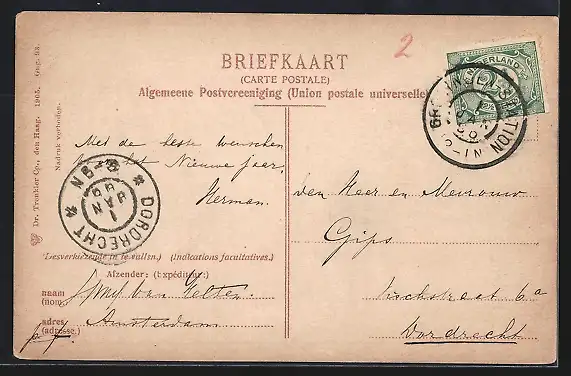 BRIEFKAART
(CARTE POSTALE)
Algemeene Postvereeniging (Union postale universelle)
2
NEDERLAND
Dr. Trenkler Co., den Haag. 1905. Gug. 93.
Nadruk verboden.
Met de beste wenschen
het Nieuwe jaar,
Herman.
DORDRECHT
JAN
N8-9
den Heer en Mevrouw
Gips
6a
Dordrecht
(Desverkiezende in te vullen.) (Indications facultatives.)
Afzender: (Expéditeur:)
naam
(nom)
van Zetten
adres
(adresse.)
Amsterdam